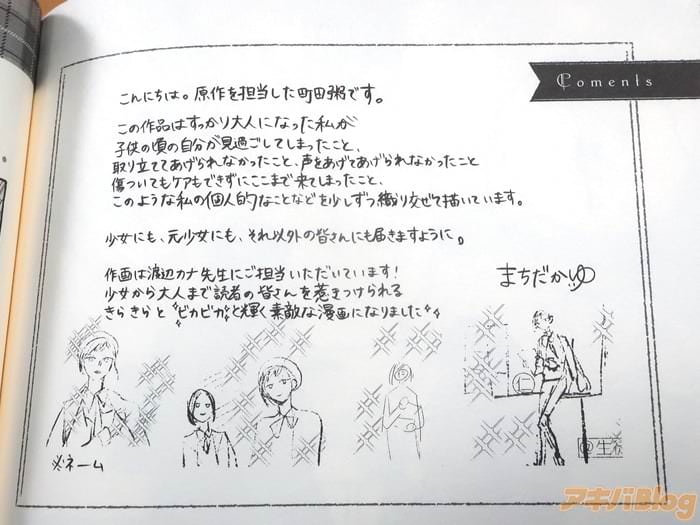 Coments
こんにちは。原作を担当した町田粥です。
この作品はすっかり大人になった私が
子供の頃の自分が見過ごしてしまったこと、
取り立ててあげられなかったこと、声をあげてあげられなかったこと
傷ついてもケアもできずにここまで来てしまったこと、
このような私の個人的なことなどを少しずつ織り交ぜて描いています。
少女にも、元少女にも、それ以外の皆さんにも届きますように。
作画は渡辺カナ先生にご担当いただいています!
少女から大人まで読者の皆さんを惹きつけられる
きらきらと"ピカピカ"と輝く素敵な漫画になりました
まちだかゆ
※ネーム
アキバBlog